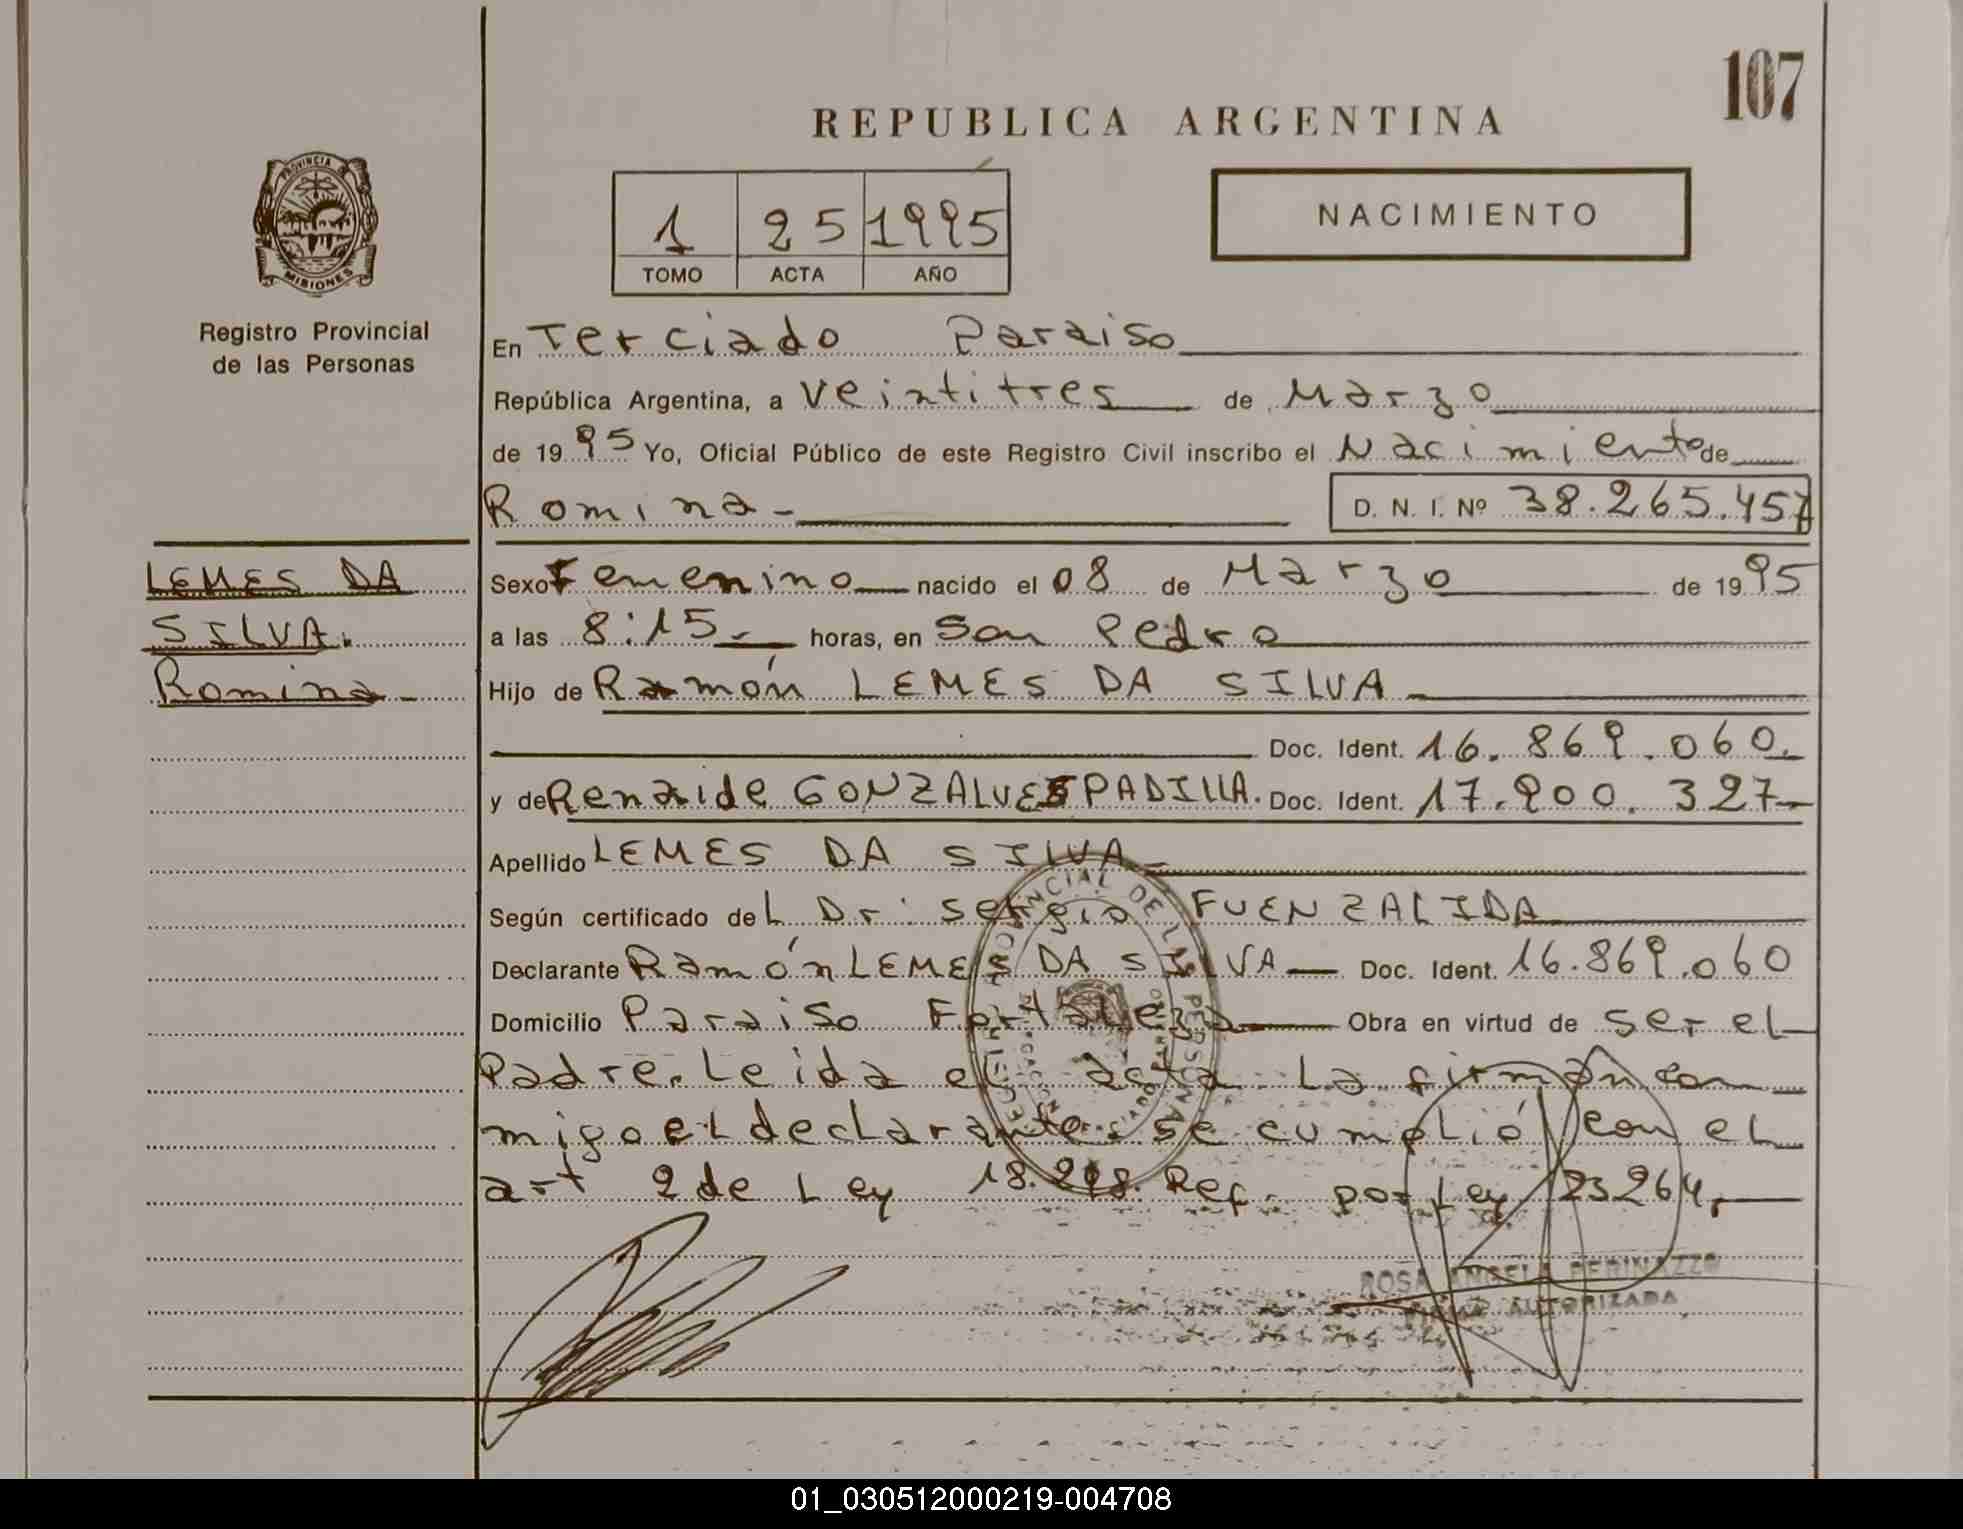 107
REPUBLICA ARGENTINA
PROVINCIA DE
MISIONES
1 25 1995
TOMO ACTA AÑO
NACIMIENTO
Registro Provincial
de las Personas
En Terciado Paraiso
República Argentina, a veintitres de Marzo
de 1995 Yo, Oficial Público de este Registro Civil inscribo el Nacimiento de
Romina - D. N. I. Nº 38.265.457
LEMES DA
SILVA.
Romina -
Sexo Femenino nacido el 08 de Marzo de 1995
a las 8:15 - horas, en San Pedro
Hijo de Ramón LEMES DA SILVA -
Doc. Ident. 16.869.060.
y de Renaide GONZALVES PADILLA. Doc. Ident. 17.900.327-
Apellido LEMES DA SILVA -
Según certificado del Dr: Sergio FUENZALIDA
Declarante Ramón LEMES DA SILVA - Doc. Ident. 16.869.060
Domicilio Paraiso Fortaleza Obra en virtud de ser el
Padre. Leida el acta La firman con
migo el declarante. se cumplió con el
art 2 de Ley 18.248. Ref. por Ley 23264.
ROSA ANGELA PERINAZZO
AUTORIZADA
01_030512000219-004708